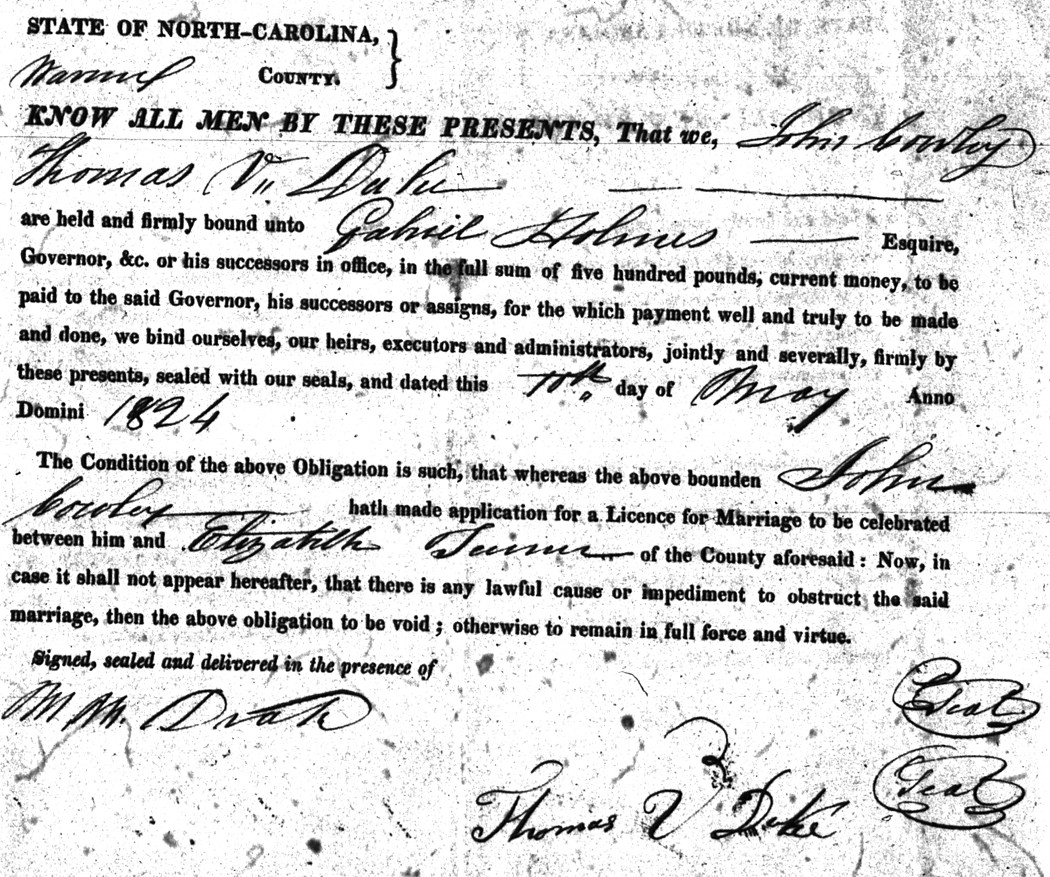 STATE OF NORTH-CAROLINA, }
Warren COUNTY.
KNOW ALL MEN BY THESE PRESENTS, That we, John Cowley
Thomas V. Duke
are held and firmly bound unto Gabriel Holmes Esquire,
Governor, &c. or his successors in office, in the full sum of five hundred pounds, current money, to be
paid to the said Governor, his successors or assigns, for the which payment well and truly to be made
and done, we bind ourselves, our heirs, executors and administrators, jointly and severally, firmly by
these presents, sealed with our seals, and dated this 10th day of May Anno
Domini 1824
The Condition of the above Obligation is such, that whereas the above bounden John
Cowley hath made application for a Licence for Marriage to be celebrated
between him and Elizabeth of the County aforesaid : Now, in
case it shall not appear hereafter, that there is any lawful cause or impediment to obstruct the said
marriage, then the above obligation to be void ; otherwise to remain in full force and virtue.
Signed, sealed and delivered in the presence of
M M. Drake
Seal
Thomas V Duke Seal